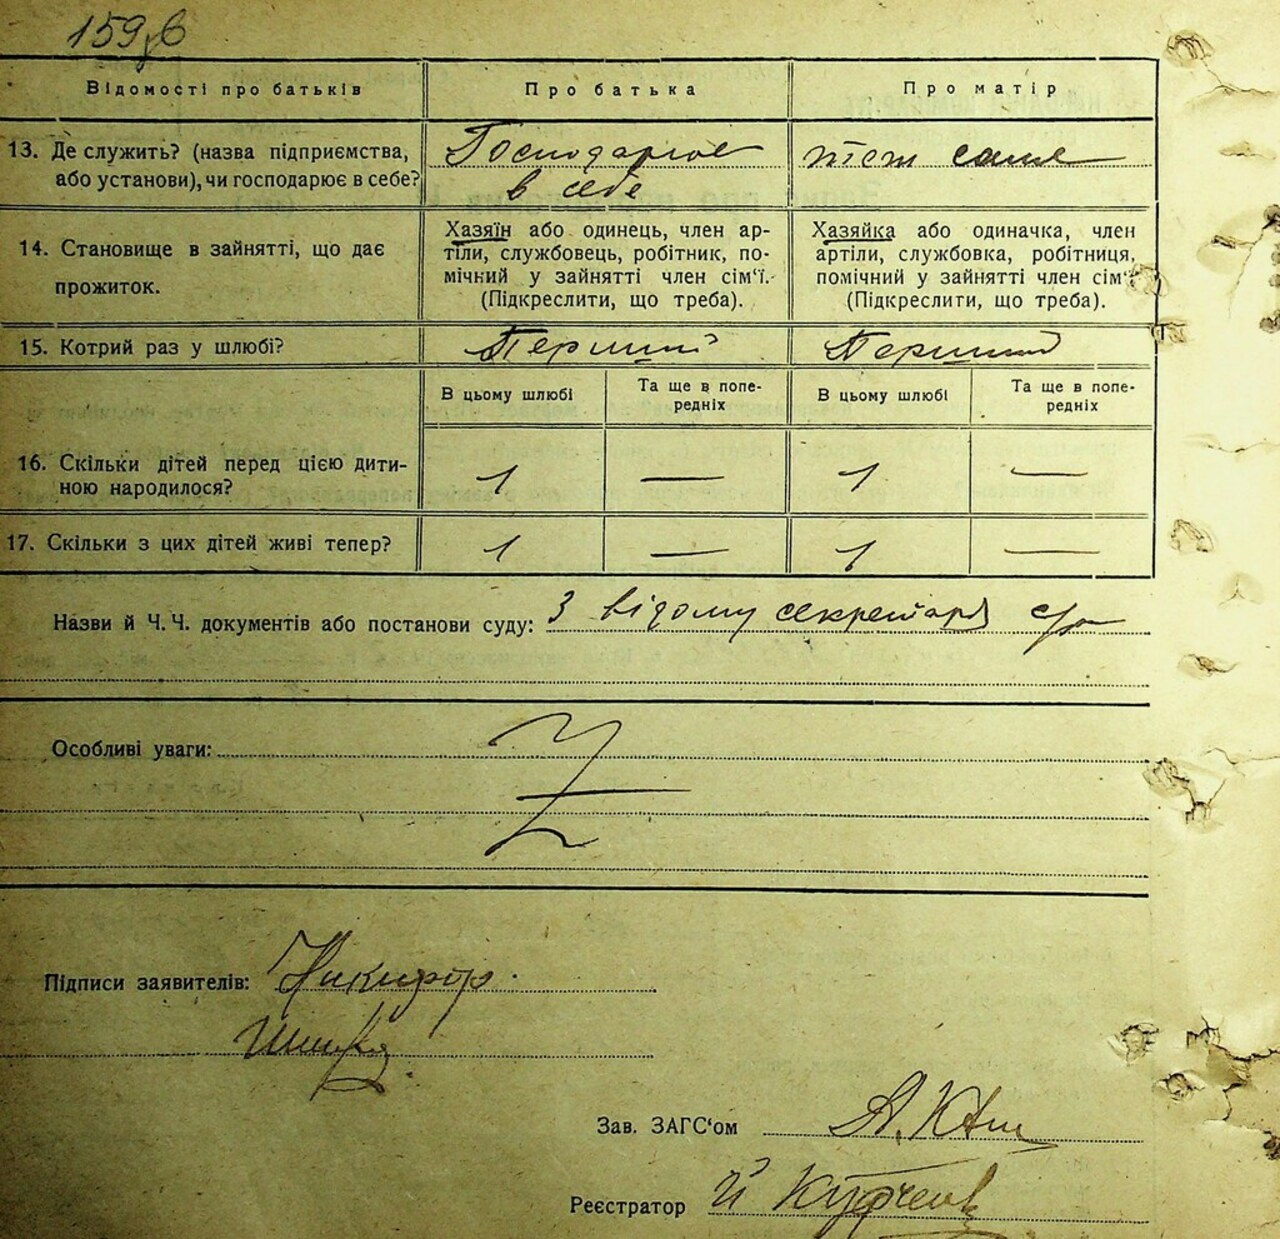 159зв
Відомості про батьків Про батька Про матір
13. Де служить? (назва підприємства, або установи), чи господарює в себе? Господарює в себе теж саме
14. Становище в зайнятті, що дає прожиток.
Хазяїн або одинець, член ар-
тіли, службовець, робітник, по-
мічний у зайнятті член сім‘ї.
(Підкреслити, що треба).
Хазяйка або одиначка, член
артіли, службовка, робітниця,
помічний у зайнятті член сім‘ї.
(Підкреслити, що треба).
15. Котрий раз у шлюбі? Перший Перший
В цьому шлюбі Та ще в попе-
редніх В цьому шлюбі Та ще в попе-
редніх
16. Скільки дітей перед цією дити-
ною народилося? 1 — 1 —
17. Скільки з цих дітей живі тепер? 1 — 1 —
Назви й Ч. Ч. документів або постанови суду: З відому секретаря с/р
Особливі уваги:
Підписи заявителів: Никифор
Зав. ЗАГС‘ом
Реєстратор